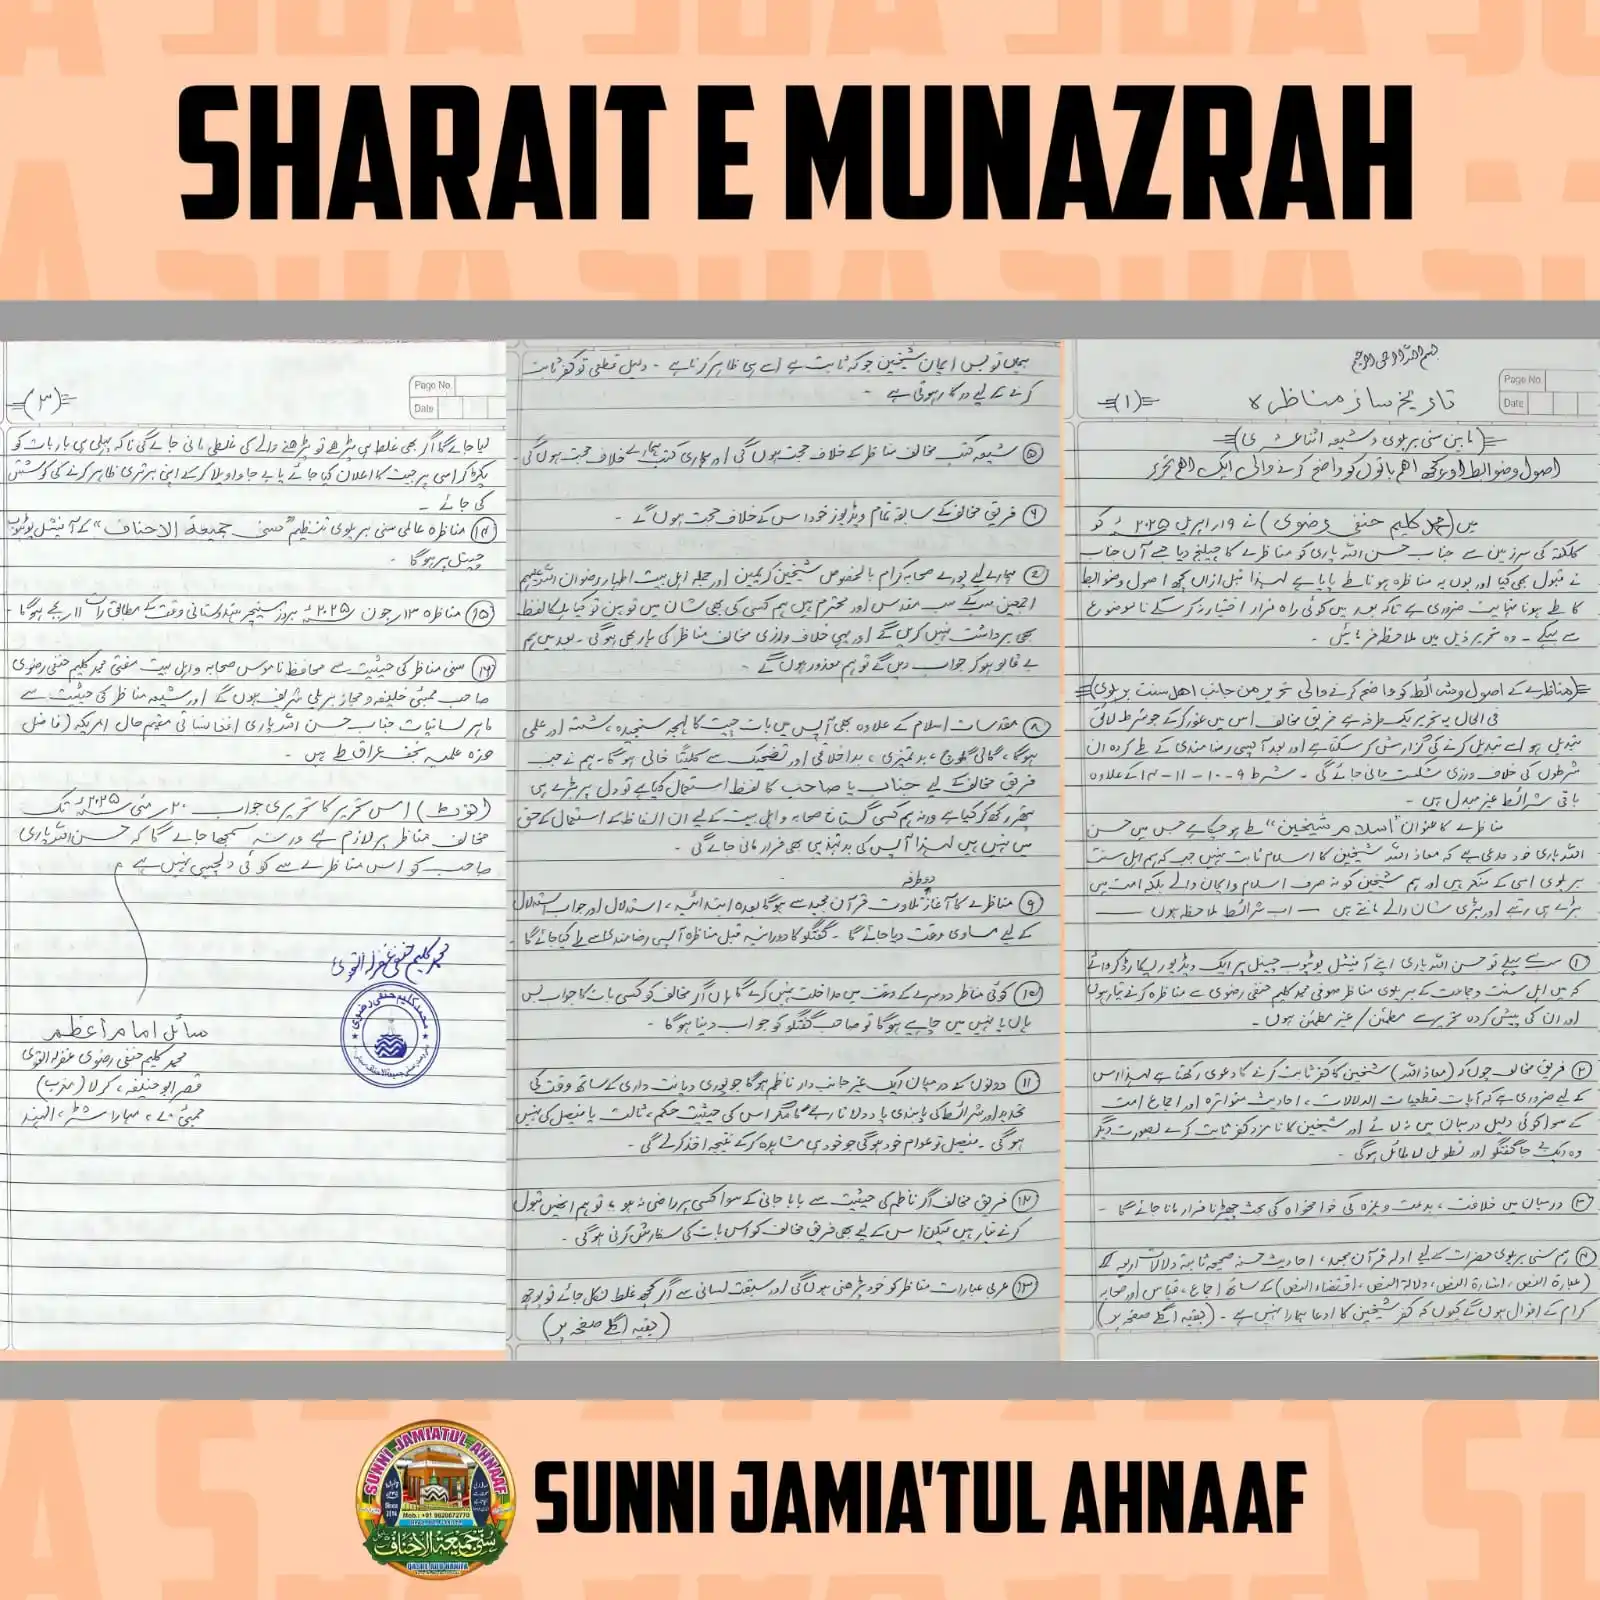 SHARAIT E MUNAZRAH
بسم اللہ الرحمن الرحیم
Page No.
Date
تاریخ ساز مناظرہ
(۱)
(مابین سنی بریلوی و شیعہ اثنا عشری)
اصول وضوابط اور کچھ اہم باتوں کو واضح کرنے والی ایک اہم تحریر
میں (محمد کلیم حنفی رضوی) نے ۱۹ اپریل ۲۰۲۵ء کو
کلکتہ کی سرزمین سے جناب حسن اللہ یاری کو مناظرے کا چیلنج دیا جسے آں جناب
نے قبول بھی کیا اور یوں یہ مناظرہ ہونا طے پایا ہے لہذا قبل ازاں کچھ اصول وضوابط
کا طے ہونا نہایت ضروری ہے تاکہ بعد میں کوئی راہ فرار اختیار نہ کر سکے نا موضوع
سے بہکے ۔ وہ تحریر ذیل میں ملاحظہ فرمائیں ۔
(مناظرے کے اصول وشرائط کو واضح کرنے والی تحریر من جانب اہل سنت بریلوی)
فی الحال یہ تحریر یک طرفہ ہے فریق مخالف اس میں غور کرکے جو شرط لائق
تبدیل ہو اسے تبدیل کرنے کی گزارش کر سکتا ہے اور بعد آپسی رضا مندی کے طے کردہ ان
شرطوں کی خلاف ورزی شکست مانی جائے گی ۔ شرط ۹-۱۰-۱۱-۱۴ کے علاوہ
باقی شرائط غیر مبدل ہیں ۔
مناظرے کا عنوان "اسلام شیخین" طے ہو چکا ہے جس میں حسن
اللہ یاری خود مدعی ہے کہ معاذ اللہ شیخین کا اسلام ثابت نہیں جب کہ ہم اہل سنت
بریلوی اسی کے منکر ہیں اور ہم شیخین کو نہ صرف اسلام وایمان والے بلکہ امت میں
بڑے ہی رتبے اور بڑی شان والے مانتے ہیں — اب شرائط ملاحظہ ہوں —
(۱) سب سے پہلے تو حسن اللہ یاری اپنے آفیشل یوٹیوب چینل پر ایک ویڈیو ریکارڈ کروائے
کہ میں اہل سنت وجماعت کے بریلوی مناظر صوفی محمد کلیم حنفی رضوی سے مناظرہ کرنے تیار ہوں
اور ان کی پیش کردہ تحریر سے مطمئن/غیر مطمئن ہوں ۔
(۲) فریق مخالف چوں کہ (معاذ اللہ) شیخین کا کفر ثابت کرنے کا دعوی رکھتا ہے لہذا اس
کے لیے ضروری ہے کہ آیات قطعیات الدلالات ، احادیث متواترہ اور اجماع امت
کے سوا کوئی دلیل درمیان میں نہ لائے اور شیخین کا نامزد کفر ثابت کرے بصورت دیگر
وہ بے جا گفتگو اور تطویل لاطائل ہوگی ۔
(۳) درمیان میں خلافت ، بدعت وغیرہ کی خوامخواہ کی بحث چھیڑنا فرار مانا جائے گا ۔
(۴) ہم سنی بریلوی حضرات کے لیے ادلہ قرآن مجید ، احادیث حسنہ صحیحہ ثابتہ دلالات اربعہ
(عبارۃ النص ، اشارۃ النص ، دلالۃ النص ، اقتضاء النص) کے ساتھ اجماع ، قیاس اور صحابہ
کرام کے اقوال ہوں گے کیوں کہ کفر شیخین کا ادعا ہمارا نہیں ہے ۔ (بقیہ اگلے صفحہ پر)
ہمیں تو بس ایمان شیخین جو کہ ثابت ہے اسے ہی ظاہر کرنا ہے ۔ دلیل قطعی تو کفر ثابت
کرنے کے لیے درکار ہوتی ہے ۔
(۵) شیعہ کتب مخالف مناظر کے خلاف حجت ہوں گی اور ہماری کتب ہمارے خلاف حجت ہوں گی ۔
(۶) فریق مخالف کے سابقہ تمام ویڈیوز خود اس کے خلاف حجت ہوں گے ۔
(۷) ہمارے لیے پورے صحابہ کرام بالخصوص شیخین کریمین اور جملہ اہل بیت اطہار رضوان اللہ علیہم
اجمعین سب کے سب مقدس اور محترم ہیں ہم کسی کی بھی شان میں توہین تو کیا ہلکا لفظ
بھی برداشت نہیں کریں گے اور یہی خلاف ورزی مخالف مناظر کی ہار بھی ہوگی ۔ بعد میں ہم
بے قابو ہو کر جواب دیں گے تو ہم معذور ہوں گے ۔
(۸) مقدسات اسلام کے علاوہ بھی آپس میں بات چیت کا لہجہ سنجیدہ ، شستہ اور علمی
ہوگا ، گالی گلوچ ، بدتمیزی ، بداخلاقی اور تضحیک سے کلیتًا خالی ہوگا ۔ ہم نے جب
فریق مخالف کے لیے جناب یا صاحب کا لفظ استعمال کیا ہے تو دل پر بڑے ہی
پتھر رکھ کر کیا ہے ورنہ ہم کسی گستاخ صحابہ واہل بیت کے لیے ان الفاظ کے استعمال کے حق
میں نہیں ہیں لہذا آپس کی بدتہذیبی بھی فرار مانی جائے گی ۔
دو طرفہ
(۹) مناظرے کا آغاز تلاوت قرآن مجید سے ہوگا بعدہ ابتدائیہ ، استدلال اور جواب استدلال
کے لیے مساوی وقت دیا جائے گا ۔ گفتگو کا دورانیہ قبل مناظرہ آپسی رضا مندی سے طے کیا جائے گا ۔
(۱۰) کوئی مناظر دوسرے کے وقت میں مداخلت نہیں کرے گا ہاں اگر مخالف کو کسی بات کا جواب بس
ہاں یا نہیں میں چاہیے ہوگا تو صاحب گفتگو کو جواب دینا ہوگا ۔
(۱۱) دونوں کے درمیان ایک غیر جانب دار ناظم ہوگا جو پوری دیانت داری کے ساتھ وقت کی
تحدید اور شرائط کی پابندی یاد دلاتا رہے گا مگر اس کی حیثیت حکم ، ثالث یا فیصل کی نہیں
ہوگی ۔ فیصل تو عوام خود ہوگی جو خود ہی مشاہدہ کرکے نتیجہ اخذ کرلے گی ۔
(۱۲) فریق مخالف اگر ناظم کی حیثیت سے بابا جانی کے سوا کسی پر راضی نہ ہو ، تو ہم انھیں قبول
کرنے تیار ہیں لیکن اس کے لیے بھی فریق مخالف کو اس بات کی سفارش کرنی ہوگی ۔
(۱۳) عربی عبارات مناظر کو خود پڑھنی ہوں گی اور سبقت لسانی سے اگر کچھ غلط نکل جائے تو پوچھ
(بقیہ اگلے صفحہ پر)
Page No.
Date
(۳)
لیا جائے گا اگر بھی غلط ہی پڑھے تو پڑھنے والے کی غلطی مانی جائے گی نا کہ پہلی ہی بار بات کو
پکڑ کر اسی پر جیت کا اعلان کیا جائے یا بے جا واویلا کرکے اپنی برتری ظاہر کرنے کی کوشش
کی جائے ۔
(۱۴) مناظرہ عالمی سنی بریلوی تنظیم "سنی جمیعۃ الاحناف" کے آفیشل یوٹیوب
چینل پر ہوگا ۔
(۱۵) مناظرہ ۱۳ جون ۲۰۲۵ء بروز سنیچر ہندوستانی وقت کے مطابق رات ۱۱ بجے ہوگا ۔
(۱۶) سنی مناظر کی حیثیت سے محافظ ناموس صحابہ واہل بیت مفتی محمد کلیم حنفی رضوی
صاحب ممبئی خلیفہ و مجاز بریلی شریف ہوں گے اور شیعہ مناظر کی حیثیت سے
ماہر لسانیات جناب حسن اللہ یاری افغانستانی مقیم حال امریکہ (فاضل
حوزہ علمیہ نجف عراق) ہیں ۔
(نوٹ) اس تحریر کا تحریری جواب ۲۰ مئی ۲۰۲۵ء تک
مخالف مناظر پر لازم ہے ورنہ سمجھا جائے گا کہ حسن اللہ یاری
صاحب کو اس مناظرے سے کوئی دلچسپی نہیں ہے
محمد کلیم حنفی غفرلہ القوی
محمد کلیم حنفی رضوی
سائل امام اعظم
محمد کلیم حنفی رضوی غفرلہ القوی
قصر ابو حنیفہ ، کرلا (مغرب)
ممبئی ۷۰ ، مہاراشٹر ، الہند
SUNNI JAMIATUL AHNAAF
Mob.: +91 9820672770
سنی جمیعۃ الاحناف
QASRE ABU HANIFA
SUNNI JAMIA'TUL AHNAAF